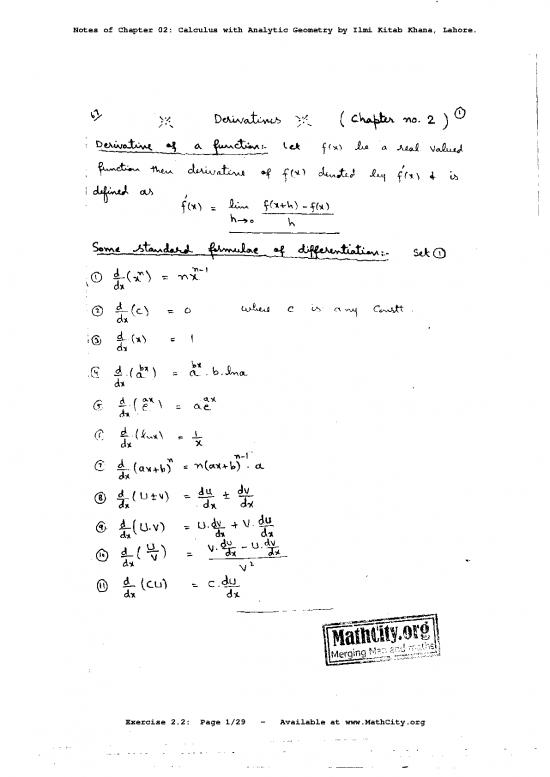 Notes of Chapter 02: Calculus with Analytic Geometry by Ilmi Kitab Khana, Lahore.
Derivatives (Chapter no. 2) ①
Derivative of a function:- Let f(x) be a real valued
function then derivative of f(x) denoted by f'(x) & is
defined as
f'(x) = lim h→0 (f(x+h) - f(x))/h
Some standard formulae of differentiation:- Set ①
① d/dx (xⁿ) = nxⁿ⁻¹
② d/dx (c) = 0 where c is any Constt.
③ d/dx (x) = 1
④ d/dx (a^bx) = a^bx . b. lna
⑤ d/dx (e^ax) = ae^ax
⑥ d/dx (lnx) = 1/x
⑦ d/dx (ax+b)ⁿ = n(ax+b)ⁿ⁻¹. a
⑧ d/dx (U±v) = du/dx ± dv/dx
⑨ d/dx (U.v) = U. dv/dx + V. du/dx
⑩ d/dx (U/V) = (V. du/dx - U. dv/dx)/V²
⑪ d/dx (CU) = C. dU/dx
MathCity.org
Merging Man and maths
Exercise 2.2: Page 1/29 - Available at www.MathCity.org